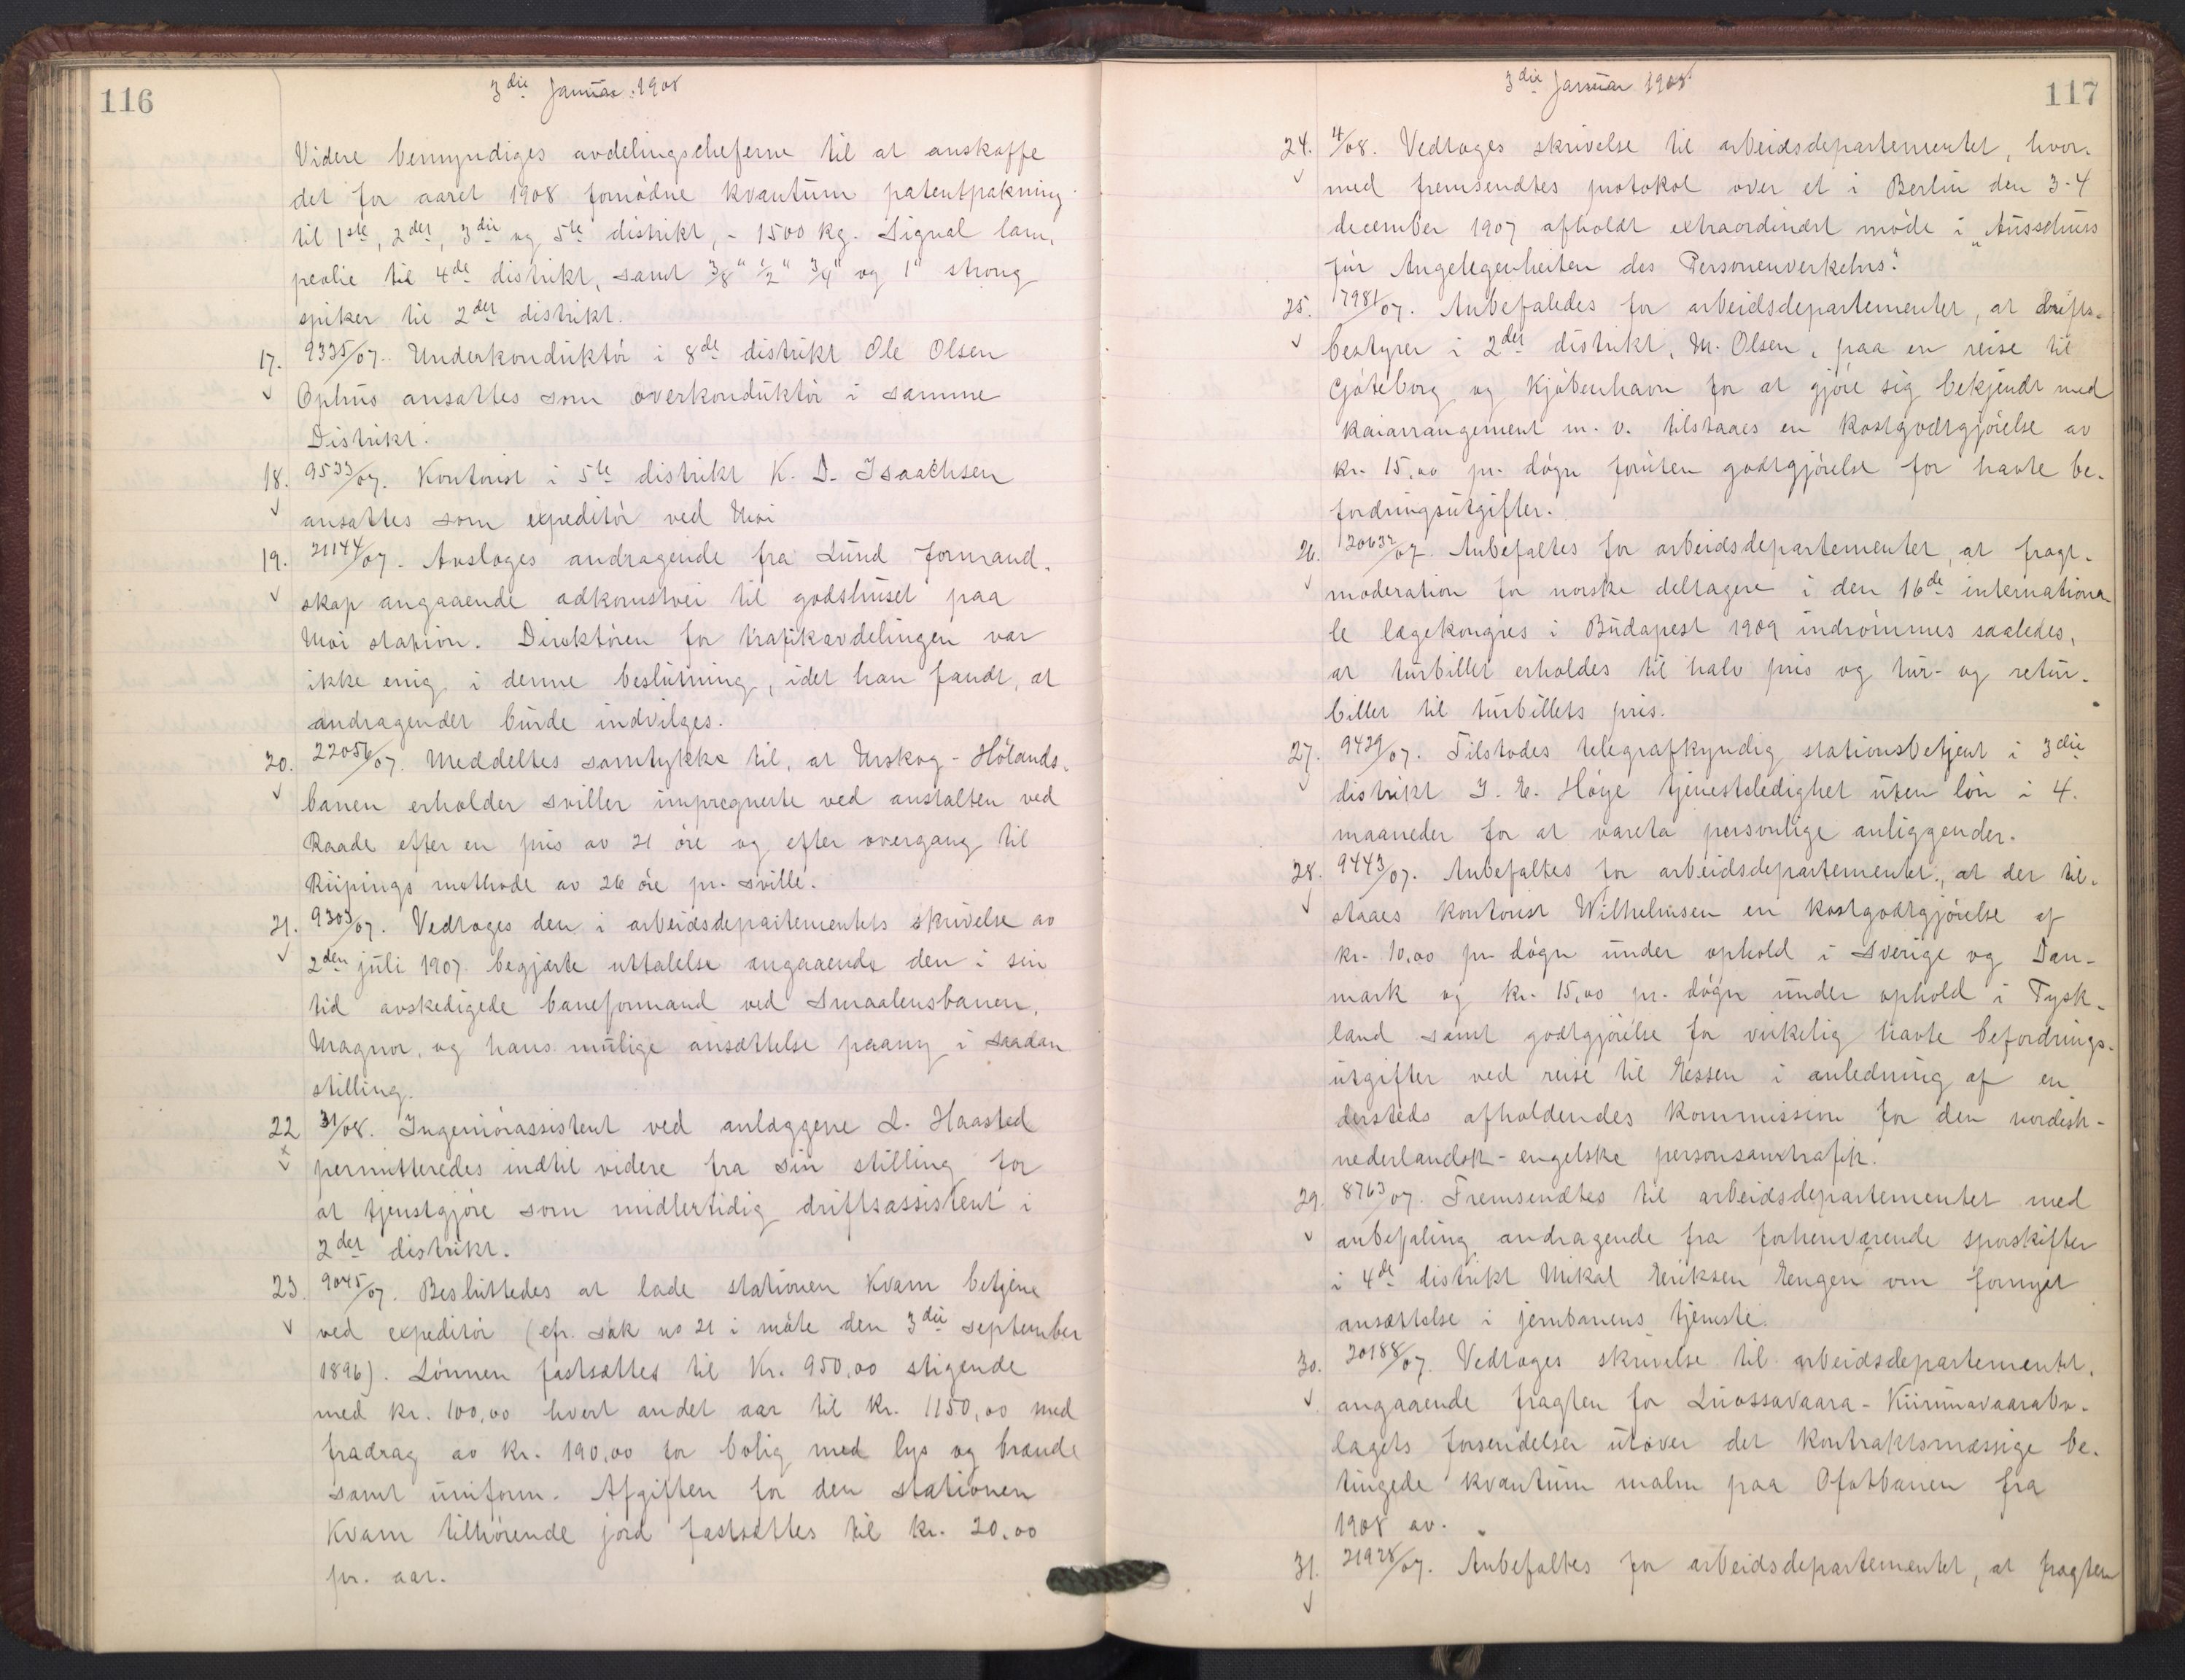 116
3die Januar 1908
Videre bemyndiges avdelingscheferne til at anskaffe
det for aaret 1908 fornødne kvantum patentpakning
til 1ste, 2det, 3die og 5te distrikt, - 1500 kg. Signal lam,
peolie til 4de distrikt, samt 3/8" 1/2" 3/4" og 1" strong
spiker til 2det distrikt.
17. 9335/07. Underkonduktør i 8de distrikt Ole Olsen
Ophus ansattes som overkonduktør i samme
Distrikt.
18. 9533/07. Kontorist i 5te distrikt K. D. Isaachsen
ansattes som expeditør ved Moi
19. 21144/07. Avsloges andragende fra Lund formand,
skap angaaende adkomstvei til godshuset paa
Moi station. Direktøren for trafikavdelingen var
ikke enig i denne beslutning, idet han fandt, at
andragendet burde indvilges.
20. 22056/07. Meddeltes samtykke til, at Urskog-Hølands,
banen erholder sviller impregnerte ved anstalten ved
Raade efter en pris av 21 øre og efter overgang til
Rüpings methode av 26 øre pr. sville.
21. 9303/07. Vedtoges den i arbeidsdepartementets skrivelse av
2den juli 1907 begjærte uttalelse angaaende den i sin
tid avskedigede baneformand ved Smaalensbanen,
Magnor, og hans mulige ansættelse paany i saadan
stilling.
22 31/08. Ingeniørassistent ved anlæggene L. Haasted
permitteredes indtil videre fra sin stilling for
at tjenstgjøre som midlertidig driftsassistent i
2det distrikt.
23. 9045/07. Besluttedes at lade stationen Kvam betjene
ved expeditør (cfr. sak no 21 i møte den 3die september
1896). Lønnen fastsattes til Kr. 950,00 stigende
med kr. 100,00 hvert andet aar til kr. 1150,00 med
fradrag av kr. 190,00 for bolig med lys og brænde
samt uniform. Afgiften for den stationen
Kvam tilhørende jord fastsættes til kr. 20,00
pr. aar.
117
3die Januar 1908
24. 4/08. Vedtoges skrivelse til arbeidsdepartementet, hvor,
med fremsendtes protokol over et i Berlin den 3-4
december 1907 afholdt extraordinært møde i „Ausschuss
für Angelegenheiten des Personenverkehrs".
25. 17981/07. Anbefaledes for arbeidsdepartementet, at drifts-
bestyrer i 2det distrikt, M. Olsen, paa en reise til
Gøteborg og Kjøbenhavn for at gjøre sig bekjendt med
kaiarrangement m. v. tilstaaes en kostgodtgjørelse av
kr. 15,00 pr. døgn foruten godtgjørelse for havte be-
fordringsutgifter.
26. 20632/07. Anbefaltes for arbeidsdepartementet, at fragt-
moderation for norske deltagere i den 16de internationa-
le lægekongres i Budapest 1909 indrømmes saaledes,
at turbillet erholdes til halv pris og tur- og retur-
billet til turbillets pris.
27. 9429/07. Tilstodes telegrafkyndig stationsbetjent i 3die
distrikt J. E. Høye tjenestsledighet uten løn i 4.
maaneder for at vareta personlige anliggender.
28. 9443/07. Anbefaltes for arbeidsdepartementet, at der til-
staaes kontorist Wilhelmsen en kostgodtgjørelse af
kr. 10,00 pr. døgn under ophold i Sverige og Dan-
mark og kr. 15,00 pr. døgn under ophold i Tysk-
land samt godtgjørelse for virkelig havte befordrings-
utgifter ved reise til Essen i anledning af en
dersteds afholdendes kommission for den nordisk-
nederlandsk-engelske personsamtrafik.
29. 8763/07. Fremsendtes til arbeidsdepartementet med
anbefaling andragende fra forhenværende sporskifter
i 4de distrikt Mikal Eriksen Engen om fornyet
ansættelse i jernbanens tjeneste.
30. 20188/07. Vedtoges skrivelse til arbeidsdepartementet,
angaaende fragten for Luossavaara-Kiirunavaarabo-
lagets forsendelser utover det kontraktsmæssige be-
tingede kvantum malm paa Ofotbanen fra
1908 av.
31. 21928/07. Anbefaltes for arbeidsdepartementet, at fragten